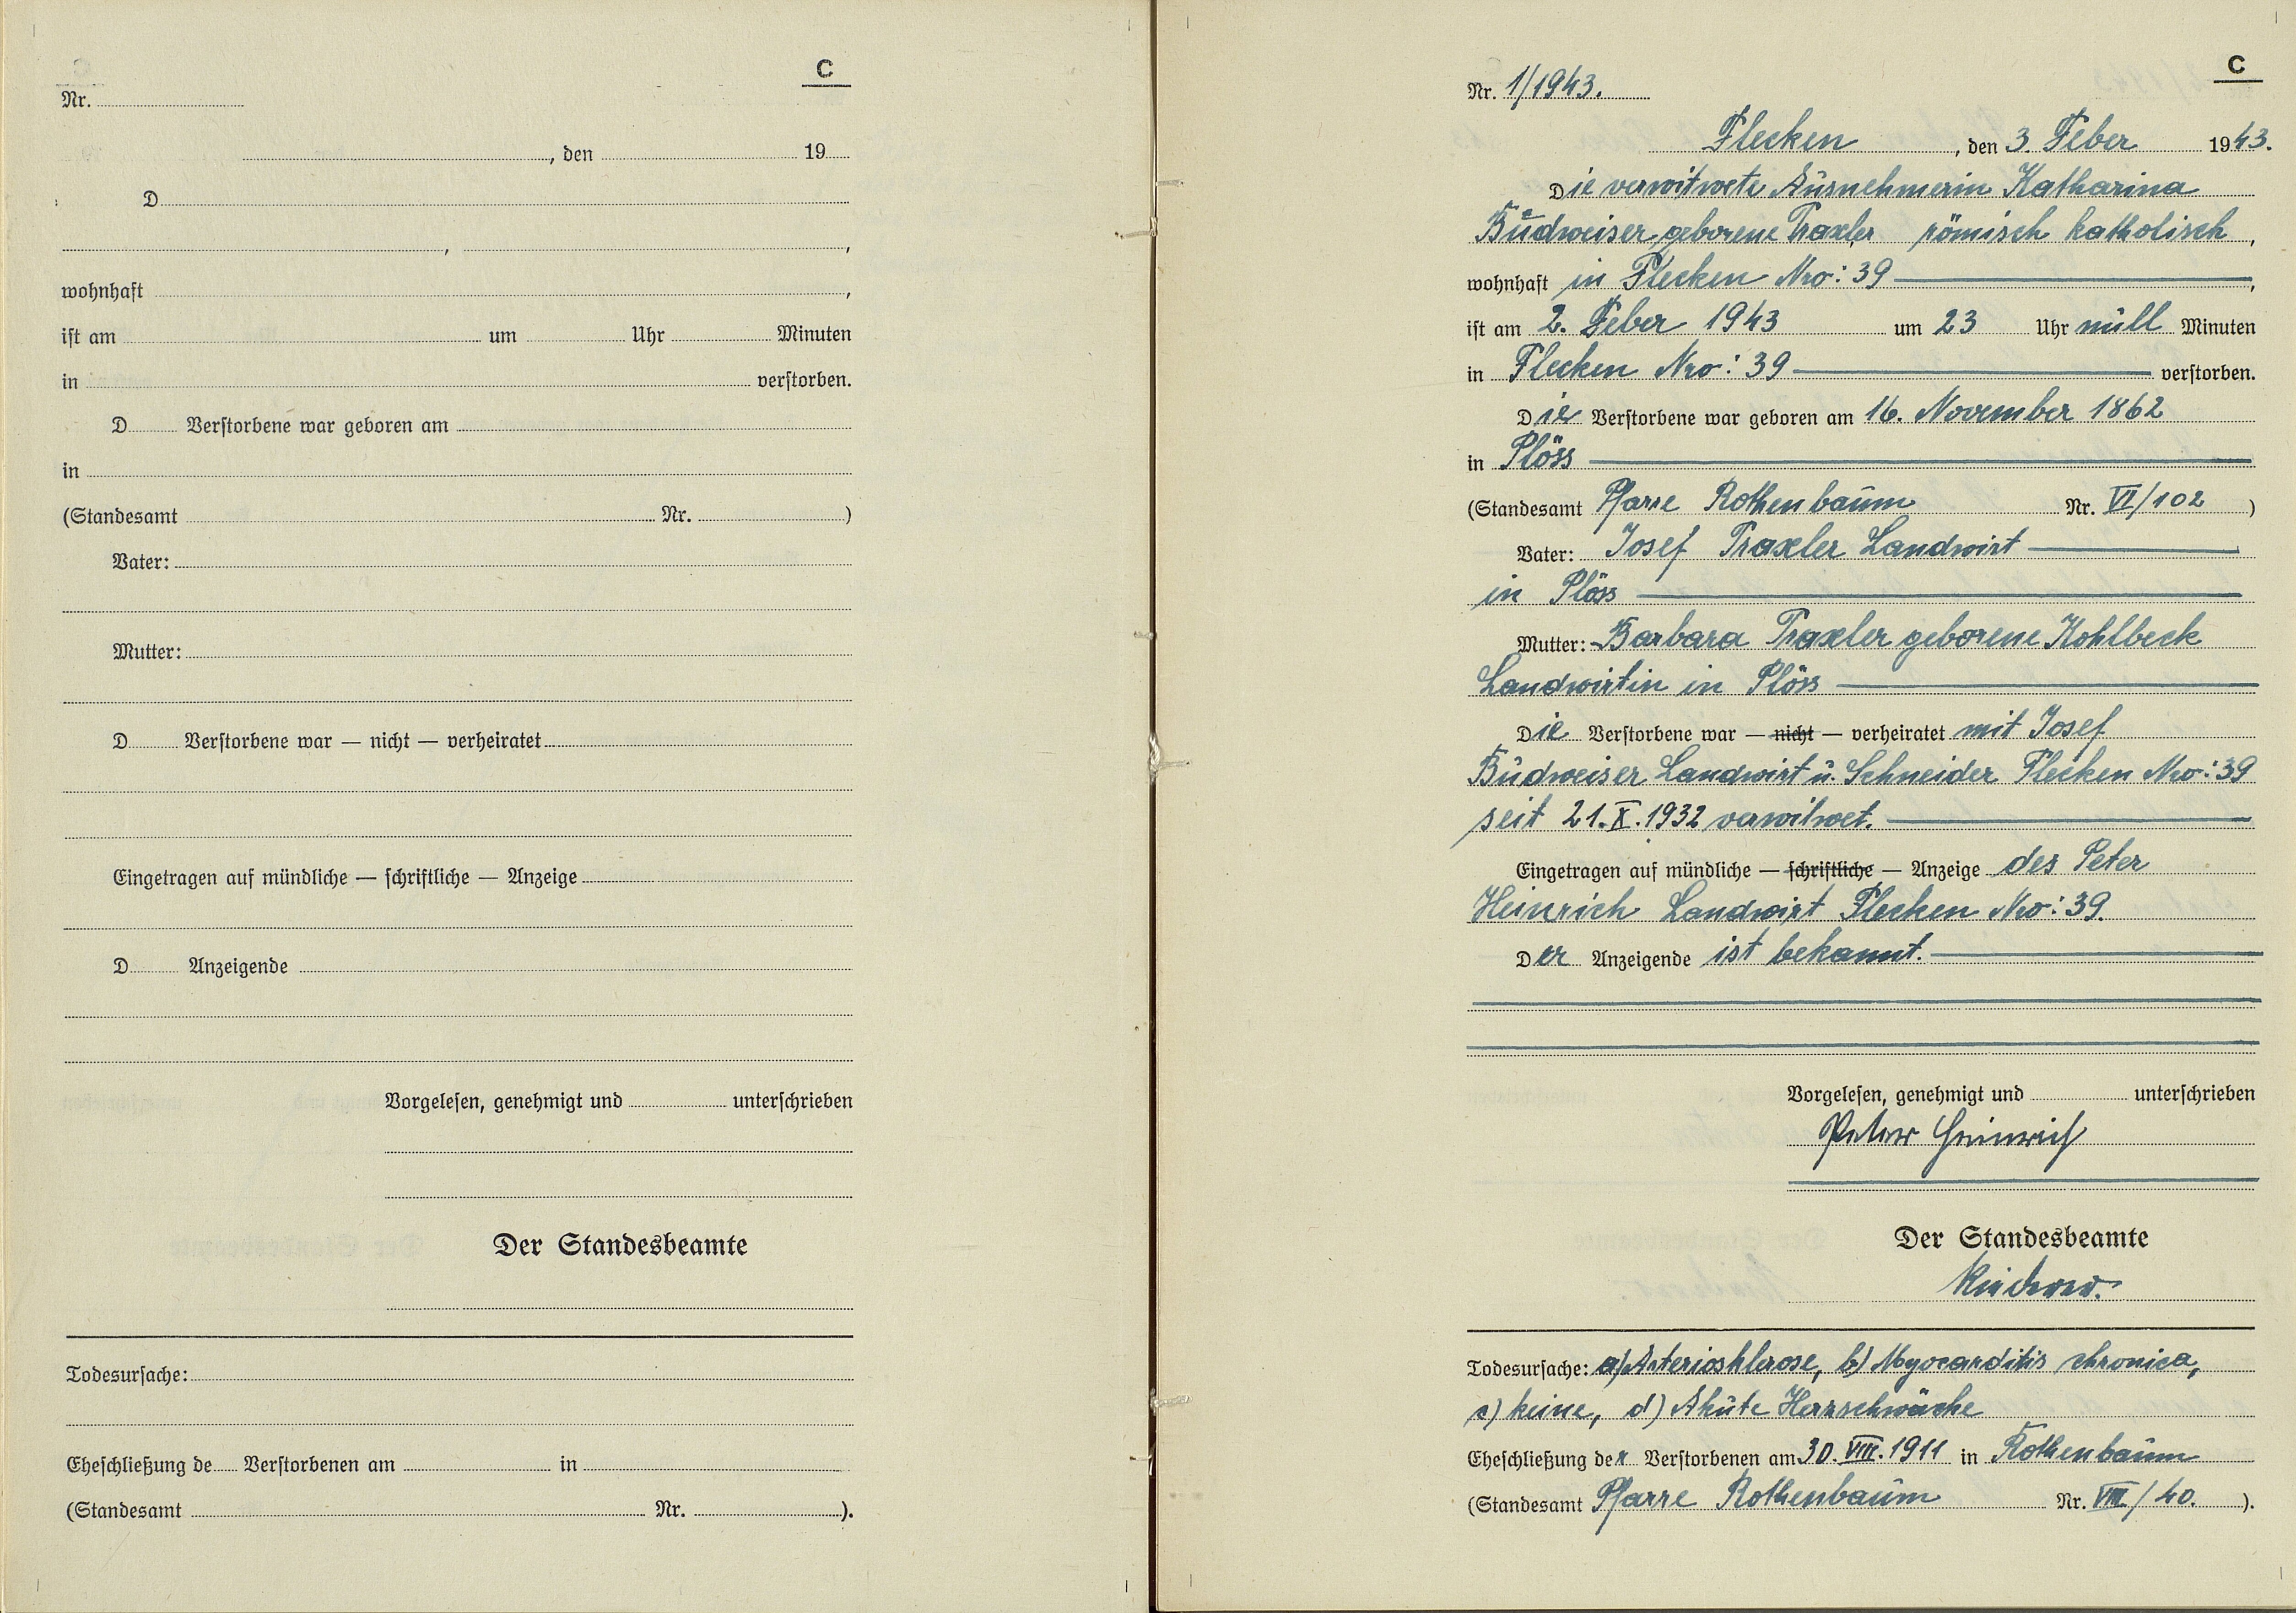 C
Nr.
, den 19
D
,
,
wohnhaft ,
ist am um Uhr Minuten
in verstorben.
D Verstorbene war geboren am
in
(Standesamt Nr. )
Vater:
Mutter:
D Verstorbene war — nicht — verheiratet
Eingetragen auf mündliche — schriftliche — Anzeige
D Anzeigende
Vorgelesen, genehmigt und unterschrieben
Der Standesbeamte
Todesursache:
Eheschließung de Verstorbenen am in
(Standesamt Nr. ).
C
Nr. 1/1943.
Flecken, den 3. Feber 1943.
Die verwitwete Ausnehmerin Katharina
Budweiser geborene Traxler römisch katholisch,
wohnhaft in Flecken Nro: 39 ,
ist am 2. Feber 1943 um 23 Uhr null Minuten
in Flecken Nro: 39 verstorben.
Die Verstorbene war geboren am 16. November 1862
in Plöss
(Standesamt Pfarre Rothenbaum Nr. VI/102 )
Vater: Josef Traxler Landwirt
in Plöss
Mutter: Barbara Traxler geborene Kohlbeck
Landwirtin in Plöss
Die Verstorbene war — nicht — verheiratet mit Josef
Budweiser Landwirt u. Schneider Flecken Nro: 39
seit 21. X. 1932 verwitwet.
Eingetragen auf mündliche — schriftliche — Anzeige des Peter
Heinrich Landwirt Flecken Nro: 39.
Der Anzeigende ist bekannt.
Vorgelesen, genehmigt und unterschrieben
Peter Heinrich
Der Standesbeamte
Todesursache: a) Arteriosklerose, b) Myocarditis chronica,
c) keine, d) Akute Herzschwäche
Eheschließung der Verstorbenen am 30. VIII. 1911 in Rothenbaum
(Standesamt Pfarre Rothenbaum Nr. VIII./40. ).